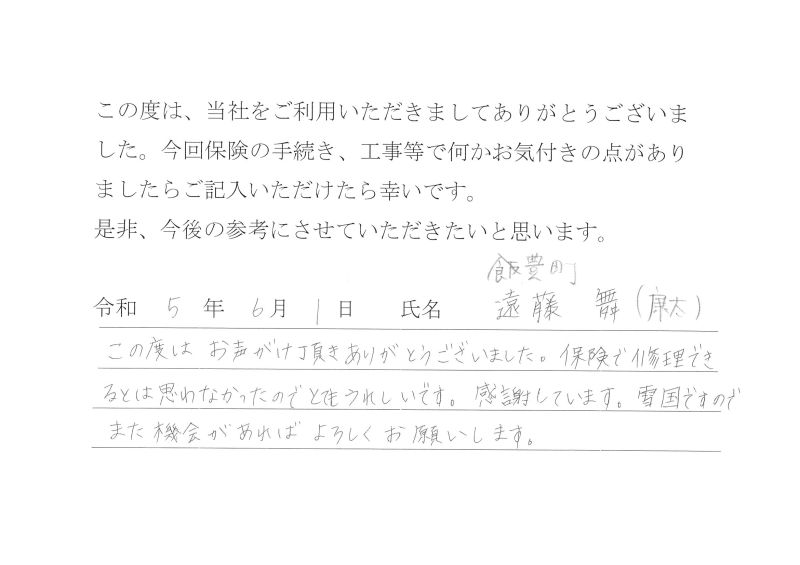 この度は、当社をご利用いただきましてありがとうございま
した。今回保険の手続き、工事等で何かお気付きの点があり
ましたらご記入いただけたら幸いです。
是非、今後の参考にさせていただきたいと思います。
飯豊町
令和 5 年 6月 1日 氏名 遠藤 舞(康太)
この度は お声がけ頂きありがとうございました。保険で修理でき
るとは思わなかったのでとてもうれしいです。感謝しています。雪国ですので
また機会があれば よろしくお願いします。